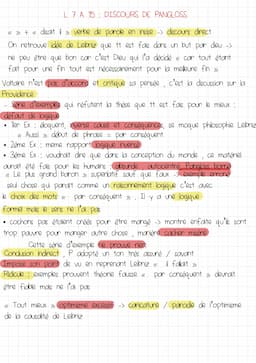 L 7 A 15 : DISCOURS DE PANGLOSS
« » + « disait il » verbe de parole en incise -> discours direct
On retrouve idée de Leibniz que tt est fait dans un but par dieu ->
ne peu être que bon car c'est Dieu qui l'a décidé « car tout étant
fait pour une fin tout est nécessairement pour la meilleure fin »
Voltaire n'est pas d'accord et critique sa pensée , c'est la discussion sur la
Providence
- série d'exemple qui réfutent la thèse que tt est fait pour le mieux :
défaut de logique
• 1er Ex : inverse cause et conséquence, se moque philosophie Leibniz
« Aussi » début de phrase = par conséquent
• 2ème Ex : meme rapport logique inversé
• 3ème Ex : voudrait dire que dans la conception du monde , ce matériel
aurait été fait pour les humains
« Le plus grand Baron » superlatif sauf que faux ->
seul chose qui parait comme un raisonnement logique c'est avec
le choix des mots « par conséquent » . Il y a une logique
formel mais le sens ne l'ai pas
• cochons pas étaient créés pour être mangé -> montre enfaite qu'ils sont
trop pauvre pour manger autre chose , manière cacher misère
Cette série d'exemple ne prouve rien
Conclusion indirect , P adopte un ton très assuré / savant
Impose son point de vu en reprenant Leibniz « il fallait »
Ridicule : exemples prouvent théorie fausse « par conséquent » devrait
être fiable mais ne l'ai pas
« Tout mieux » optimisme excessif -> caricature / parodie de l'optimisme
de la causalité de Leibniz